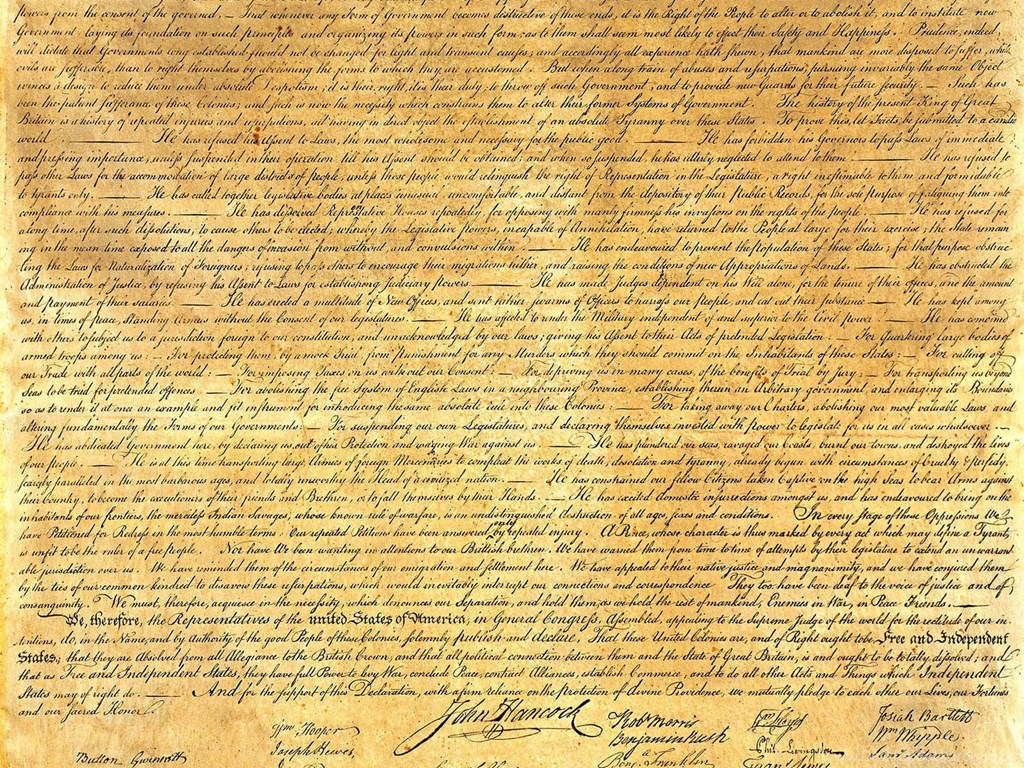 powers from the consent of the governed, — That whenever any Form of Government becomes destructive of these ends, it is the Right of the People to alter or to abolish it, and to institute new
Government, laying its foundation on such principles and organizing its powers in such form, as to them shall seem most likely to effect their Safety and Happiness. Prudence, indeed,
will dictate that Governments long established should not be changed for light and transient causes; and accordingly all experience hath shewn, that mankind are more disposed to suffer, while
evils are sufferable, than to right themselves by abolishing the forms to which they are accustomed. But when a long train of abuses and usurpations, pursuing invariably the same Object
evinces a design to reduce them under absolute Despotism, it is their right, it is their duty, to throw off such Government, and to provide new Guards for their future security. — Such has
been the patient sufferance of these Colonies; and such is now the necessity which constrains them to alter their former Systems of Government. The history of the present King of Great
Britain is a history of repeated injuries and usurpations, all having in direct object the establishment of an absolute Tyranny over these States. To prove this, let Facts be submitted to a candid
world. — He has refused his Assent to Laws, the most wholesome and necessary for the public good. — He has forbidden his Governors to pass Laws of immediate
and pressing importance, unless suspended in their operation till his Assent should be obtained; and when so suspended, he has utterly neglected to attend to them. — He has refused to
pass other Laws for the accommodation of large districts of people, unless those people would relinquish the right of Representation in the Legislature, a right inestimable to them and formidable
to tyrants only. — He has called together legislative bodies at places unusual, uncomfortable, and distant from the depository of their public Records, for the sole purpose of fatiguing them into
compliance with his measures. — He has dissolved Representative Houses repeatedly, for opposing with manly firmness his invasions on the rights of the people. — He has refused for
a long time, after such dissolutions, to cause others to be elected; whereby the Legislative powers, incapable of Annihilation, have returned to the People at large for their exercise; the State remain
ing in the mean time exposed to all the dangers of invasion from without, and convulsions within. — He has endeavoured to prevent the Population of these States; for that purpose obstruc
ting the Laws for Naturalization of Foreigners; refusing to pass others to encourage their migrations hither, and raising the conditions of new Appropriations of Lands. — He has obstructed the
Administration of Justice, by refusing his Assent to Laws for establishing Judiciary powers. — He has made Judges dependent on his Will alone, for the tenure of their offices, and the amount
and payment of their salaries. — He has erected a multitude of New Offices, and sent hither swarms of Officers to harrass our people, and eat out their substance. — He has kept among
us, in times of peace, Standing Armies without the Consent of our legislatures. — He has affected to render the Military independent of and superior to the Civil power. — He has combined
with others to subject us to a jurisdiction foreign to our constitution, and unacknowledged by our laws; giving his Assent to their Acts of pretended Legislation: — For Quartering large bodies of
armed troops among us: — For protecting them, by a mock Trial, from punishment for any Murders which they should commit on the Inhabitants of these States: — For cutting off
our Trade with all parts of the world: — For imposing Taxes on us without our Consent: — For depriving us in many cases, of the benefits of Trial by Jury: — For transporting us beyond
Seas to be tried for pretended offences — For abolishing the free System of English Laws in a neighbouring Province, establishing therein an Arbitrary government, and enlarging its Boundaries
so as to render it at once an example and fit instrument for introducing the same absolute rule into these Colonies: — For taking away our Charters, abolishing our most valuable Laws, and
altering fundamentally the Forms of our Governments: — For suspending our own Legislatures, and declaring themselves invested with power to legislate for us in all cases whatsoever. —
He has abdicated Government here, by declaring us out of his Protection and waging War against us. — He has plundered our seas, ravaged our Coasts, burnt our towns, and destroyed the lives
of our people. — He is at this time transporting large Armies of foreign Mercenaries to compleat the works of death, desolation and tyranny, already begun with circumstances of Cruelty & perfidy
scarcely paralleled in the most barbarous ages, and totally unworthy the Head of a civilized nation. — He has constrained our fellow Citizens taken Captive on the high Seas to bear Arms against
their Country, to become the executioners of their friends and Brethren, or to fall themselves by their Hands. — He has excited domestic insurrections amongst us, and has endeavoured to bring on the
inhabitants of our frontiers, the merciless Indian Savages, whose known rule of warfare, is an undistinguished destruction of all ages, sexes and conditions. In every stage of these Oppressions We
have Petitioned for Redress in the most humble terms: Our repeated Petitions have been answered only by repeated injury. A Prince, whose character is thus marked by every act which may define a Tyrant,
is unfit to be the ruler of a free people. Nor have We been wanting in attentions to our Brittish brethren. We have warned them from time to time of attempts by their legislature to extend an unwarrant
able jurisdiction over us. We have reminded them of the circumstances of our emigration and settlement here. We have appealed to their native justice and magnanimity, and we have conjured them
by the ties of our common kindred to disavow these usurpations, which, would inevitably interrupt our connections and correspondence. They too have been deaf to the voice of justice and of
consanguinity. We must, therefore, acquiesce in the necessity, which denounces our Separation, and hold them, as we hold the rest of mankind, Enemies in War, in Peace Friends. —
We, therefore, the Representatives of the united States of America, in General Congress, Assembled, appealing to the Supreme Judge of the world for the rectitude of our in
tentions, do, in the Name, and by Authority of the good People of these Colonies, solemnly publish and declare, That these United Colonies are, and of Right ought to be Free and Independent
States; that they are Absolved from all Allegiance to the British Crown, and that all political connection between them and the State of Great Britain, is and ought to be totally dissolved; and
that as Free and Independent States, they have full Power to levy War, conclude Peace, contract Alliances, establish Commerce, and to do all other Acts and Things which Independent
States may of right do. — And for the support of this Declaration, with a firm reliance on the protection of divine Providence, we mutually pledge to each other our Lives, our Fortunes
and our sacred Honor.
John Hancock
Button Gwinnett
Wm Hooper
Joseph Hewes,
Robt Morris
Benjamin Rush
Benj. Franklin
Phil. Livingston
Josiah Bartlett
Wm Whipple
Saml Adams